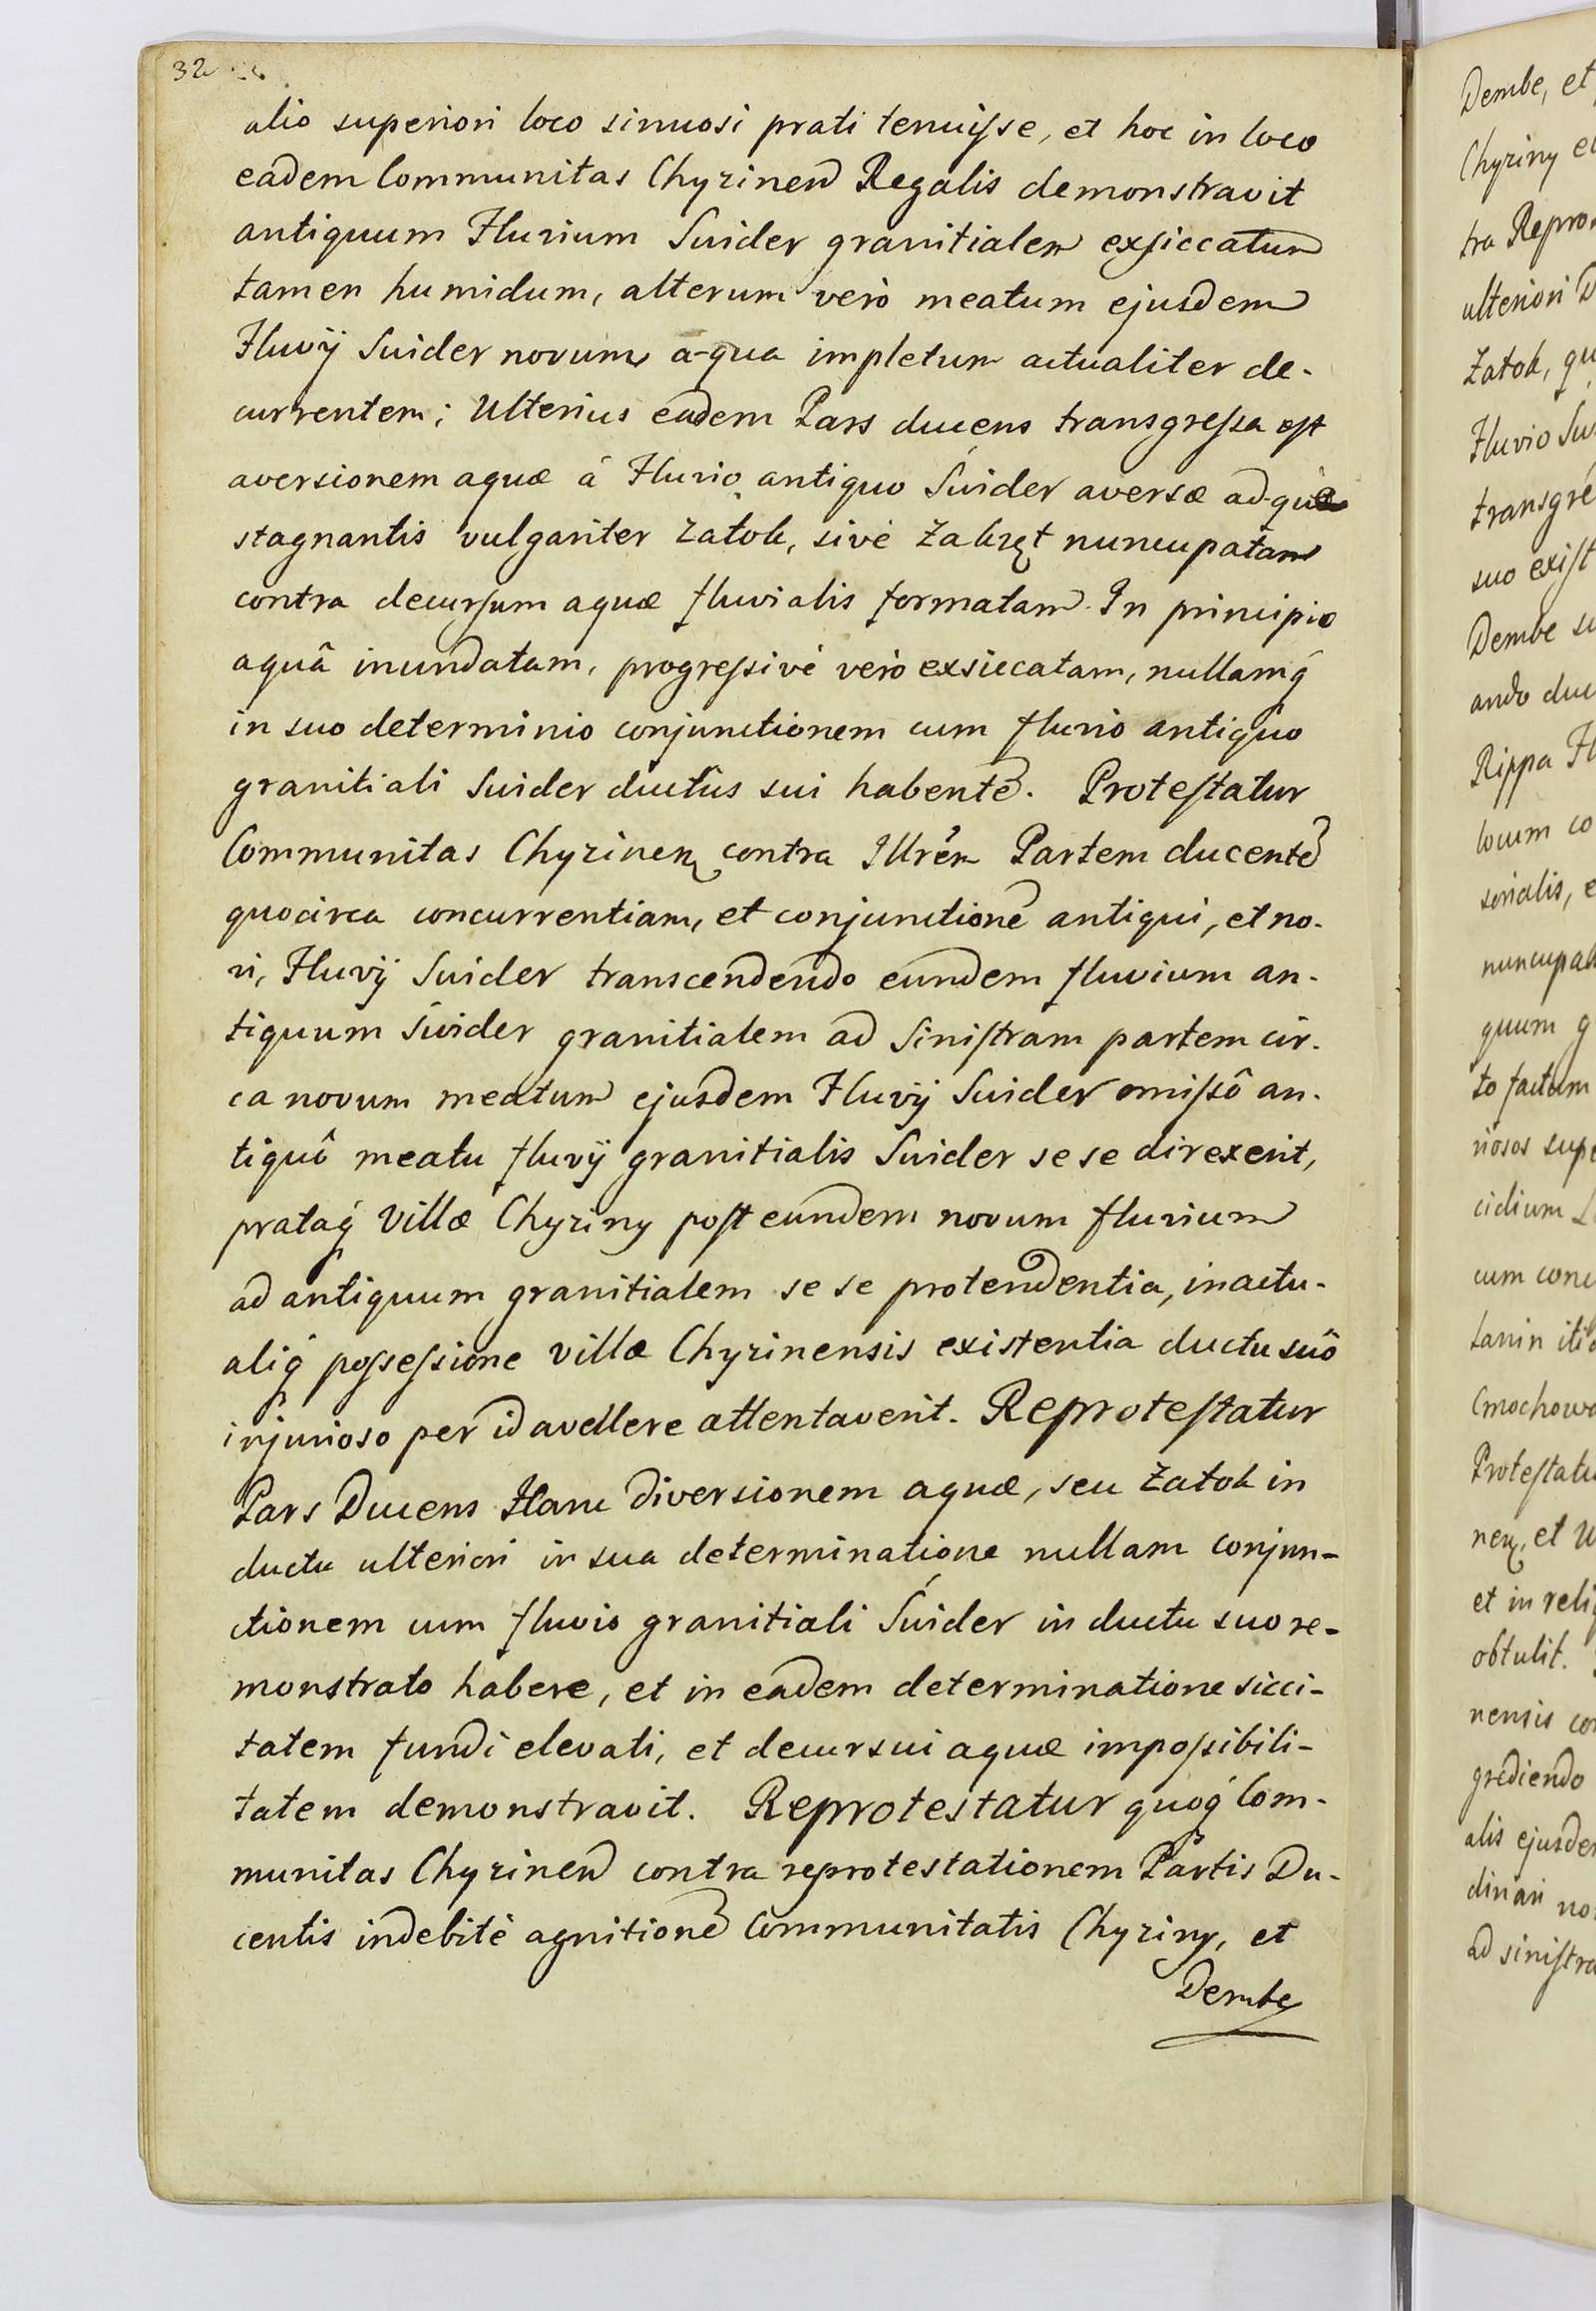 32
alio superiori loco sinuosi prati tenuiſse, et hoc in loco
eadem Communitas Chyzinen Regalis demonstravit
antiquum Fluvium Suider granitialem exſiccatum
tamen humidum, alterum verò meatum ejusdem
Fluvÿ Suider novum a-qua impletum actualiter de-
currentem; Ulterius eadem Pars ducens transgreſsa eſt
aversionem aquæ á Fluvio antiquo Suider aversæ ad-
stagnantis vulgariter zatok, sivè zakręt nuncupatam
contra decurſum aquæ fluvialis formatam. In principio
aquâ inundatam, progreſsivè verò exsiccatam, nullamq́
in suo determinio conjunctionem cum fluvio antiquo
granitiali Suider ductûs sui habentē. Proteſtatur
Communitas Chyzinen contra Illrém Partem ducentē
quocirca concurrentiam, et conjunctionē antiqui, et no-
vi, Fluvÿ Suider transcendendo eundem fluvium an-
tiquum Suider granitialem ad siniſtram partem cir-
ca novum meatum ejusdem Fluvÿ Suider omiſsô an-
tiquô meatu fluvÿ granitialis Suider se se direxerit,
prataq́ Villæ Chyziny poſt eundem novum fluvium
ad antiquum granitialem se se protendentia, in actu-
aliq́ poſseſsione villæ Chyzinensis existentia ductu suô
injurioso per id avellere attentaverit. Reproteſtatur
Pars Ducens Hanc diversionem aquæ, seu zatok in
ductu ulteriori in sua determinatione nullam conjun-
ctionem cum fluvio granitiali Suider in ductu suo re-
monstrato habere, et in eadem determinatione sicci-
tatem fundi elevati, et decursui aquæ impoſsibili-
tatem demonstravit. Reprotestatur quoq́ Com-
munitas Chyzinen contra reprotestationem Partis Du-
centis indebitè agnitionē Communitatis Chyziny, et
Dembe
Dembe, et
Chyziny et
tra Repro
ulteriori
Zatok, qu
Fluvio Su
transgre
suo exiſt
Dembe
ando duc
Rippa Fl
locum co
sinalis, e
nuncupat
quum g
to factam
riosos supe
cidium
cum conc
tanin
Cmochowa
Proteſtatu
nen, et
et in reli
obtulit.
nensis con
grediendo
alis ejusdem
dinari no
ad siniſtra